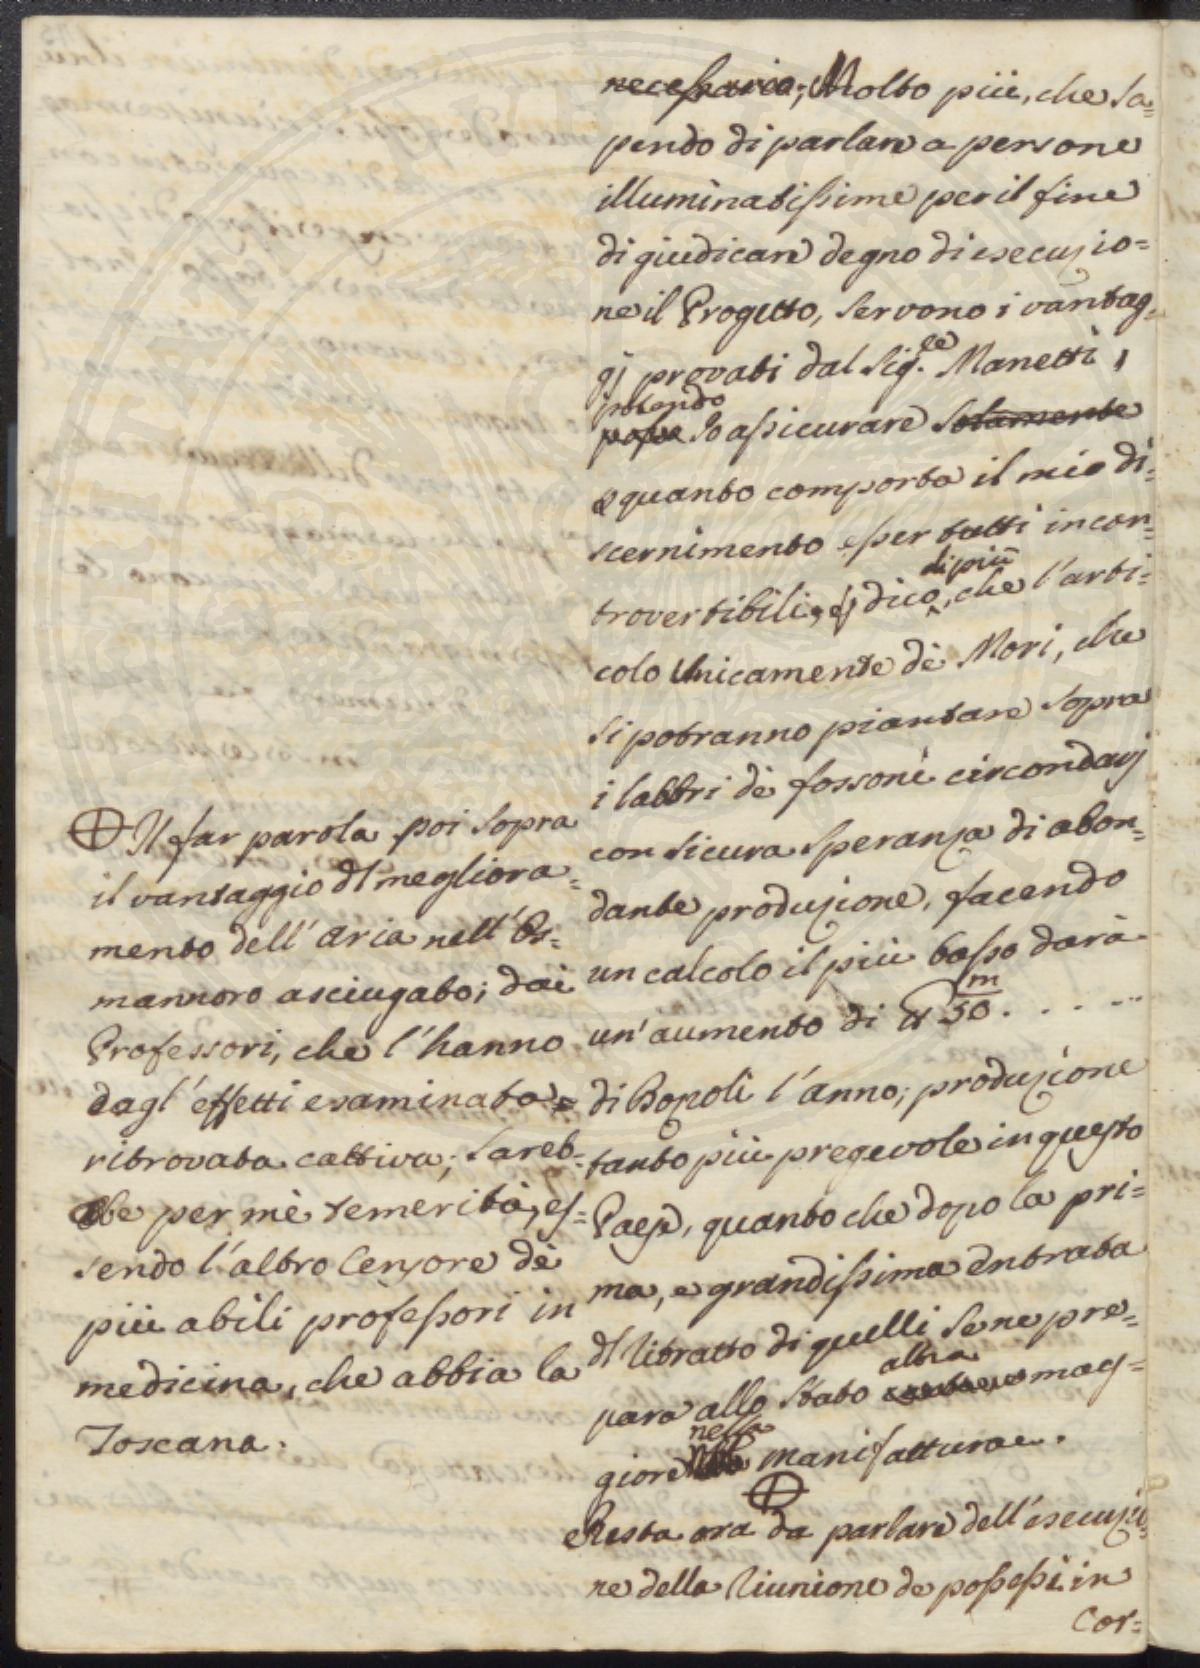 necessario; Molto più, che sa=
pendo di parlare a persone
illuminatissime per il fine
di giudicare degno di esecuzio=
ne il Progetto, servono i vantag=
gj provati dal Sig.re Manetti,
potendo
Io assicurare solamente
quanto comporta il mio di=
scernimento esser tutti incon=
di più
trovertibili, dico, che l'arti=
colo unicamente de Mori, che
si potranno piantare sopra
i labbri dè fossoni circondarj
con sicura speranza di abon=
dante produzione, facendo
un calcolo il più basso darà
un'aumento di 50m . . . . ...
di Bozzoli l'anno; produzione
tanto più pregevole in questo
Paese, quanto che dopo la pri=
ma, e grandissima entrata
dl ritratto di quelli se ne pre=
altra
para allo Stato mag=
nella
giore manifatturae.
⊕
Resta ora da parlare dell'esecuzio=
ne della riunione de possessi in
Cor=
⊕ Il far parola poi sopra
il vantaggio dl megliora=
mento dell'aria nell'Os=
mannoro asciugato; dai
Professori, che l'hanno
dagl'effetti esaminata e
ritrovata cattiva; sareb=
be per mè temerità, es=
sendo l'altro Censore dè
più abili professori in
medicina, che abbia la
Toscana.